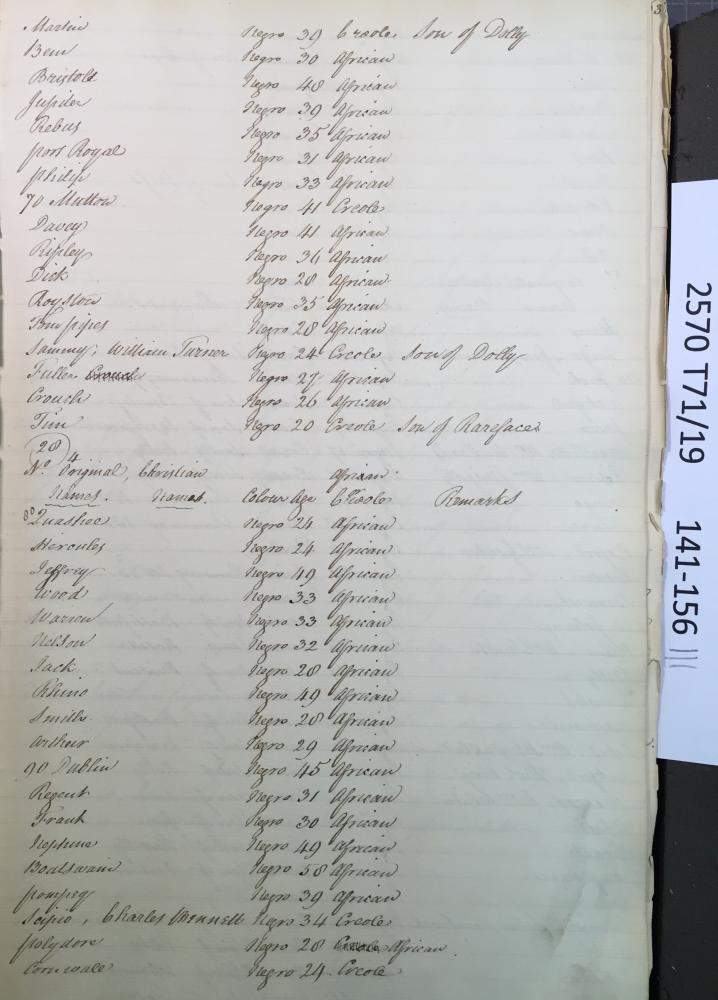 Martin Negro 39 Creole Son of Dolly
Ben Negro 30 African
Bristole Negro 48 African
Jupiter Negro 39 African
Rebus Negro 35 African
port Royal Negro 31 African
philip Negro 33 African
70 Mutton Negro 41 Creole
Davey Negro 41 African
Ripley Negro 36 African
Dick Negro 28 African
Royston Negro 35 African
Tom pipes Negro 28 African
Sammy, William Turner Negro 24 Creole Son of Dolly
Fuller Negro 27 African
Crouch Negro 26 African
Tim Negro 20 Creole Son of Rareface
28
4
No. Original, Christian African
Names. Names. Colour Age Creole Remarks
80 Quashee Negro 24 African
Hercules Negro 24 African
Jeffrey Negro 49 African
Wood Negro 33 African
Warren Negro 33 African
Nelson Negro 32 African
Jack Negro 28 African
Rhino Negro 49 African
Smith Negro 28 African
Arthur Negro 29 African
90 Dublin Negro 45 African
Regent Negro 31 African
Frank Negro 30 African
Neptune Negro 49 African
Boatswain Negro 58 African
pompey Negro 39 African
Scipio, Charles Bennett Negro 34 Creole
polydore Negro 28 Creole African
Cornwall Negro 24 Creole
3
2570 T71/19 141-156